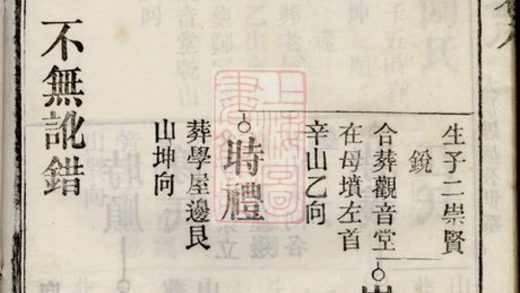 生子二崇賢
銳
合葬觀音堂
在母墳左首
辛山乙向
時禮
葬學屋邊艮
山坤向
不無訛錯